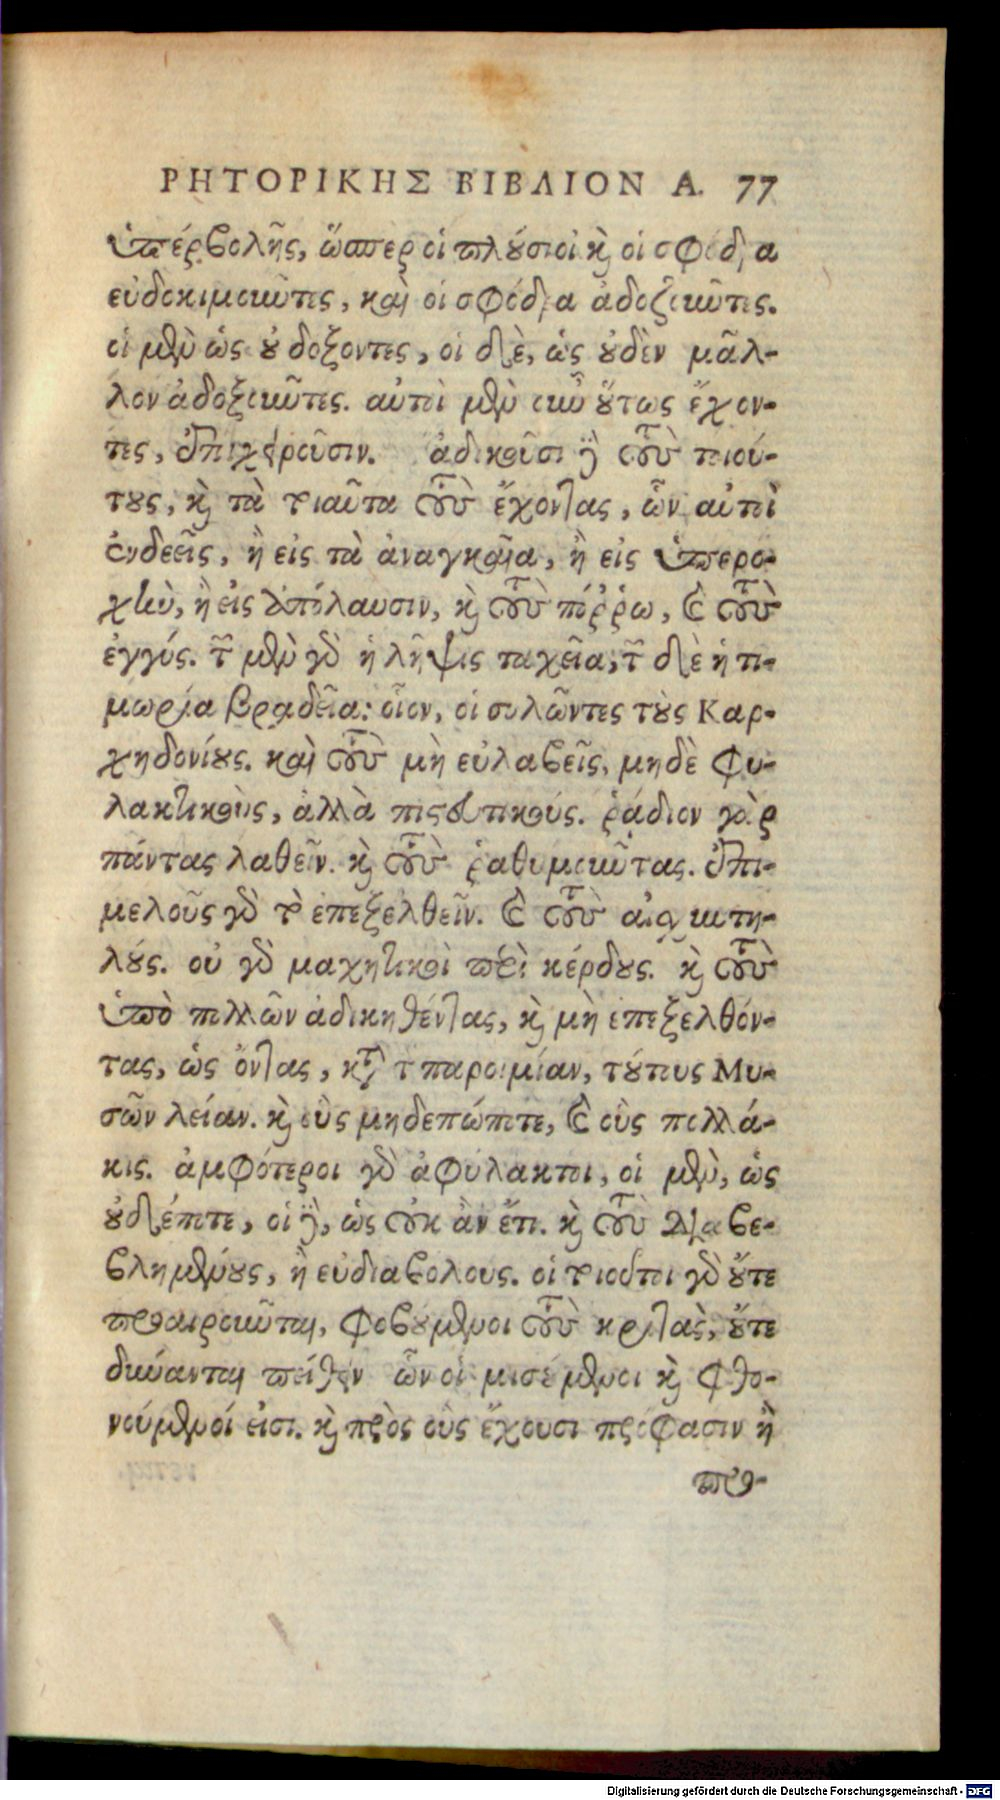 ΡΗΤΟΡΙΚΗΣ ΒΙΒΛΙΟΝ Α. 77
ὑπέρβολῆς, ὥσπερ οἱ πλούσιοι καὶ οἱ σφόδρα
εὐδοκιμοῦντες, καὶ οἱ σφόδρα ἀδοξοῦντες.
οἱ μὲν ὡς οὐ δόξοντες, οἱ δὲ, ὡς οὐδὲν μᾶλ-
λον ἀδοξοῦντες. αὐτοὶ μὲν οὖν οὕτως ἔχον-
τες, ἐπιχειροῦσιν. ἀδικοῦσι δὲ τοὺς τοιού-
τους, καὶ τὰ τοιαῦτα τοὺς ἔχοντας, ὧν αὐτοὶ
ἐνδεεῖς, ἢ εἰς τὰ ἀναγκαῖα, ἢ εἰς ὑπερο-
χὴν, ἢ εἰς ἀπόλαυσιν, καὶ τοὺς πόῤῥω, καὶ τοὺς
ἐγγύς. τῶν μὲν γὰρ ἡ λῆψις ταχεῖα, τῶν δὲ ἡ τι-
μωρία βραδεῖα: οἷον, οἱ συλῶντες τοὺς Καρ-
χηδονίους. καὶ τοὺς μὴ εὐλαβεῖς, μηδὲ φυ-
λακτικοὺς, ἀλλὰ πιστευτικούς. ῥᾴδιον γὰρ
πάντας λαθεῖν. καὶ τοὺς ῥαθυμοῦντας. ἐπι-
μελοῦς γὰρ τὸ ἐπεξελθεῖν. καὶ τοὺς αἰσχυντη-
λούς. οὐ γὰρ μαχητικοὶ περὶ κέρδους. καὶ τοὺς
ὑπὸ πολλῶν ἀδικηθέντας, καὶ μὴ ἐπεξελθόν-
τας, ὡς ὄντας, κατὰ τὴν παροιμίαν, τούτους Μυ-
σῶν λείαν. καὶ οὓς μηδεπώποτε, καὶ οὓς πολλά-
κις. ἀμφότεροι γὰρ ἀφύλακτοι, οἱ μὲν, ὡς
οὐδέποτε, οἱ δὲ, ὡς οὐκ ἂν ἔτι. καὶ τοὺς διαβε-
βλημένους, ἢ εὐδιαβόλους. οἱ τοιοῦτοι γὰρ οὔτε
προαιροῦνται, φοβούμενοι τοὺς κριτὰς, οὔτε
δύνανται πείθειν ὧν οἱ μισούμενοι καὶ φθο-
νούμενοί εἰσι. καὶ πρὸς οὓς ἔχουσι πρόφασιν ἢ
προ-
Digitalisierung gefördert durch die Deutsche Forschungsgemeinschaft - DFG